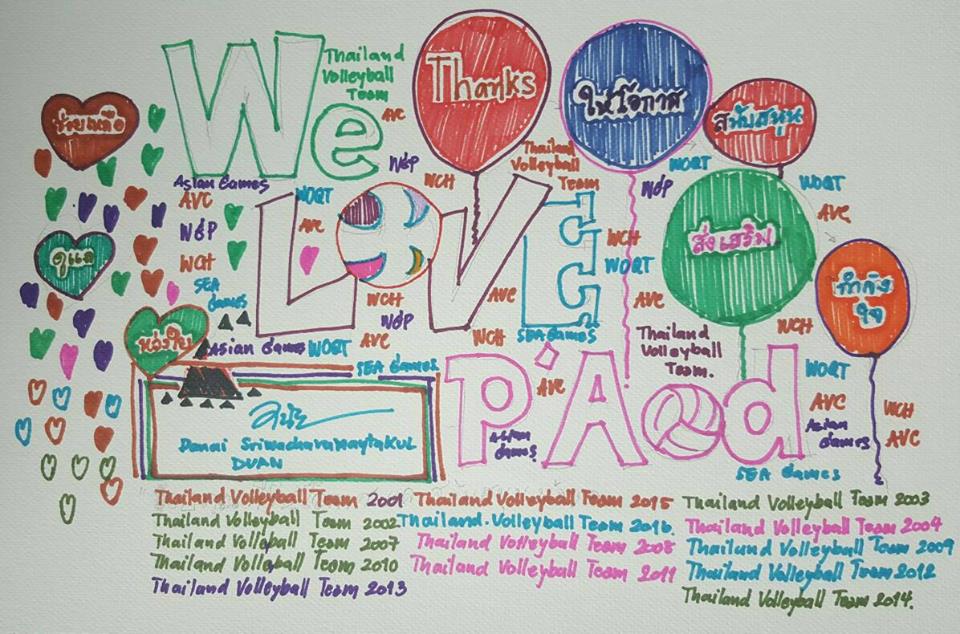 We
Thailand
Volleyball
Team
AVC
Thanks
ให้โอกาส
สนับสนุน
ช่วยเหลือ
W&P
WCH
Thailand
Volleyball
Team
WOQT
W&P
WOQT
AVC
Asian Games
AVC
W&P
WCH
SEA
Games
LOVE
WOQT
AVC
WCH
WOQT
AVC
ส่งเสริม
ดูแล
กำลัง
ใจ
WCH
W&P
AVC
AVC
WCH
SEA Games
WCH
Thailand
Volleyball
Team.
ห่วงใย
Asian Games WOQT
SEA Games
P'Aod
AVC
Asian
Games
WOQT
AVC
Asian
Games
WCH
AVC
SEA Games
Danai Sriwacharamaytakul
DUAN
Thailand Volleyball Team 2001 Thailand Volleyball Team 2015 Thailand Volleyball Team 2003
Thailand Volleyball Team 2002 Thailand Volleyball Team 2016 Thailand Volleyball Team 2004
Thailand Volleyball Team 2007 Thailand Volleyball Team 2008 Thailand Volleyball Team 2009
Thailand Volleyball Team 2010 Thailand Volleyball Team 2011 Thailand Volleyball Team 2012
Thailand Volleyball Team 2013 Thailand Volleyball Team 2014.